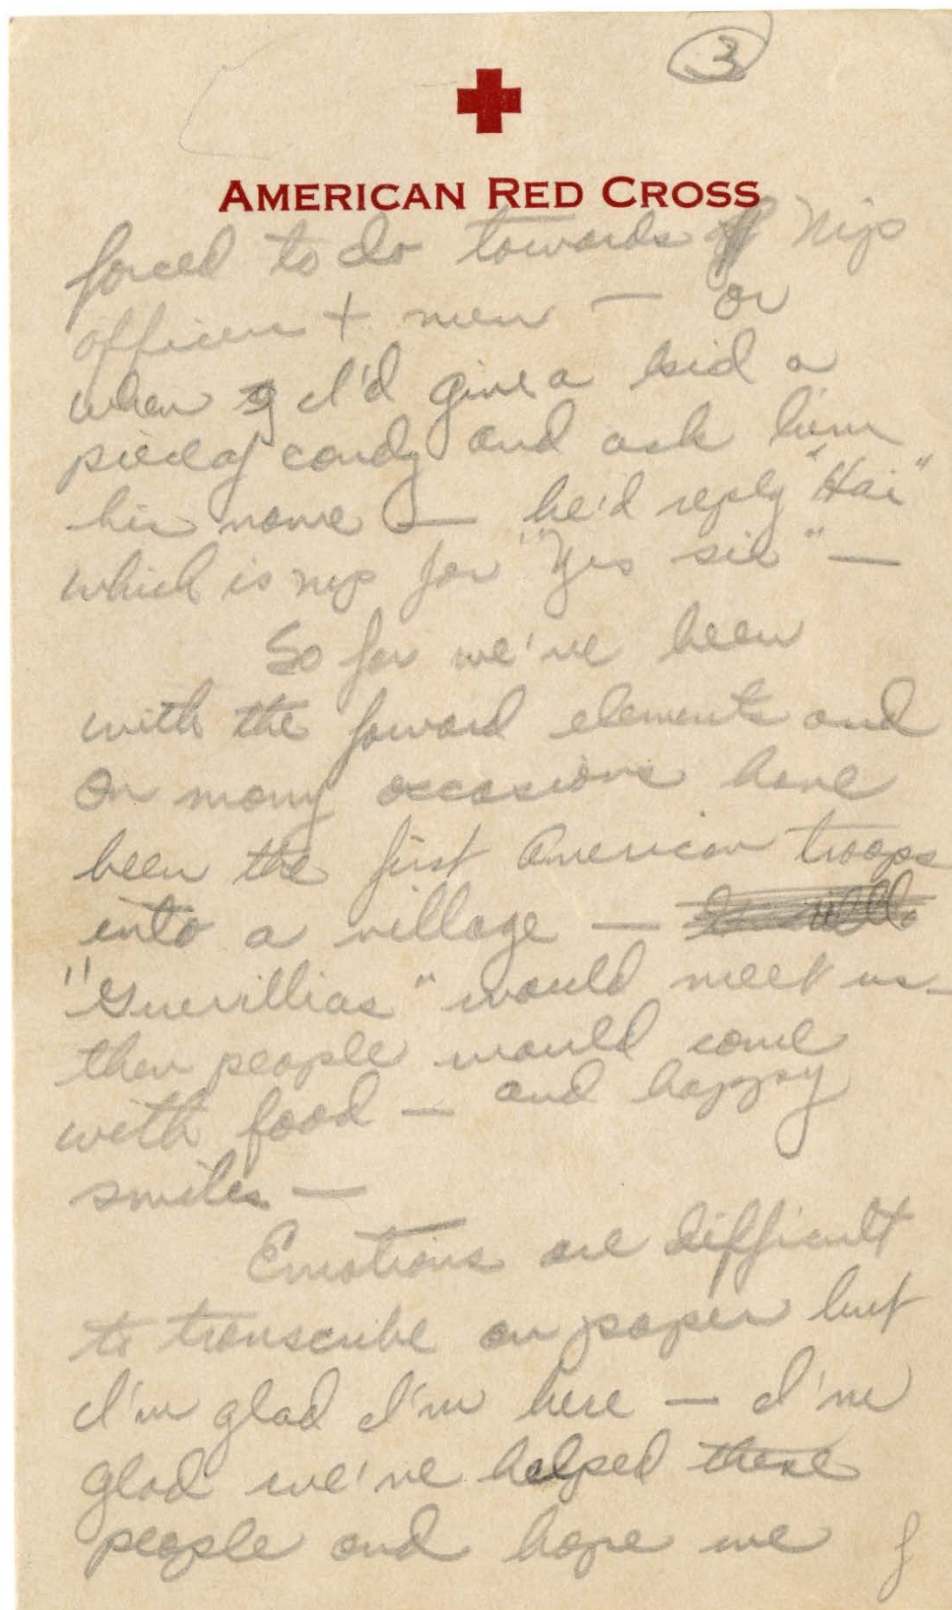 3
AMERICAN RED CROSS
forced to do towards Nip
officers + men — or
when I'd give a kid a
piece of candy and ask him
his name — he'd reply "Hai"
which is nip for "Yes sir" —
So far we've been
with the forward elements and
on many occasions have
been the first American troops
into a village —
"Guerrillias" would meet us —
then people would come
with food — and happy
smiles —
Emotions are difficult
to transcribe on paper but
I'm glad I'm here — I'm
glad we've helped these
people and hope we